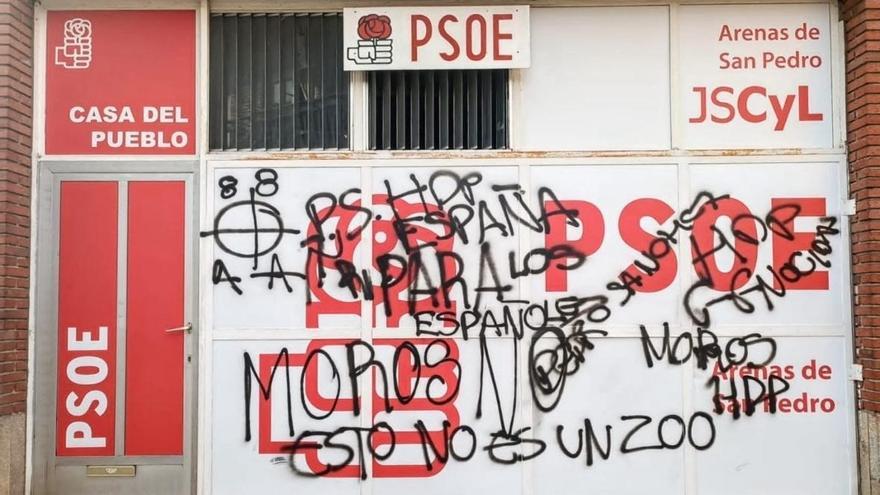 PSOE
Arenas de
San Pedro
JSCyL
CASA DEL
PUEBLO
88
HDP
ESPAÑA
PARA
LOS
ESPAÑOLES
PSOE
HDP
PSOE
MOROS NO
MOROS
HDP
Arenas de
San Pedro
ESTO NO ES UN ZOO